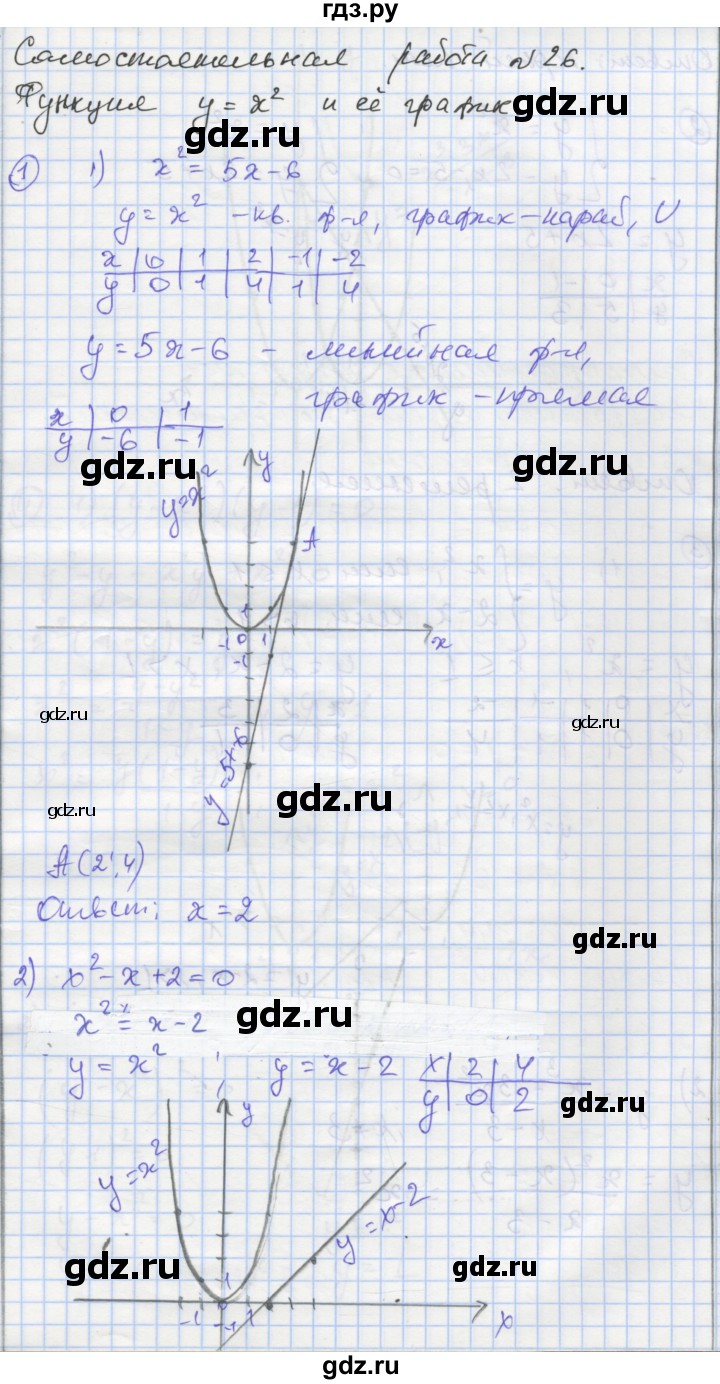 гдз.ру
Самостоятельная работа №26.
Функция y = x² и её график
gdz.ru
gdz.ru
1 1) x² = 5x - 6
y = x² - кв. ф-я, график - параб, U
x | 0 | 1 | 2 | -1 | -2
y | 0 | 1 | 4 | 1 | 4
gdz.ru
gdz.ru
y = 5x - 6 - линейная ф-я,
график - прямая
x | 0 | 1
y | -6 | -1
gdz.ru
gdz.ru
y = x²
y
gdz.ru
A
1
-1 0 1 x
-1
gdz.ru
gdz.ru
y = 5x - 6
gdz.ru
gdz.ru
A(2; 4)
Ответ: x = 2
gdz.ru
2) x² - x + 2 = 0
x² = x - 2
gdz.ru
y = x² y = x - 2
x | 2 | 4
y | 0 | 2
gdz.ru
y
y = x²
y = x - 2
gdz.ru
gdz.ru
1
-1 0 1 x
-1
gdz.ru